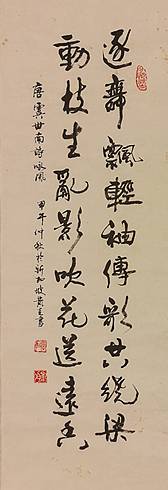 逐舞飄輕袖傳歌共繞梁
動枝生亂影吹花送遠香
唐虞世南詩咏風
甲午仲秋於新加坡黃